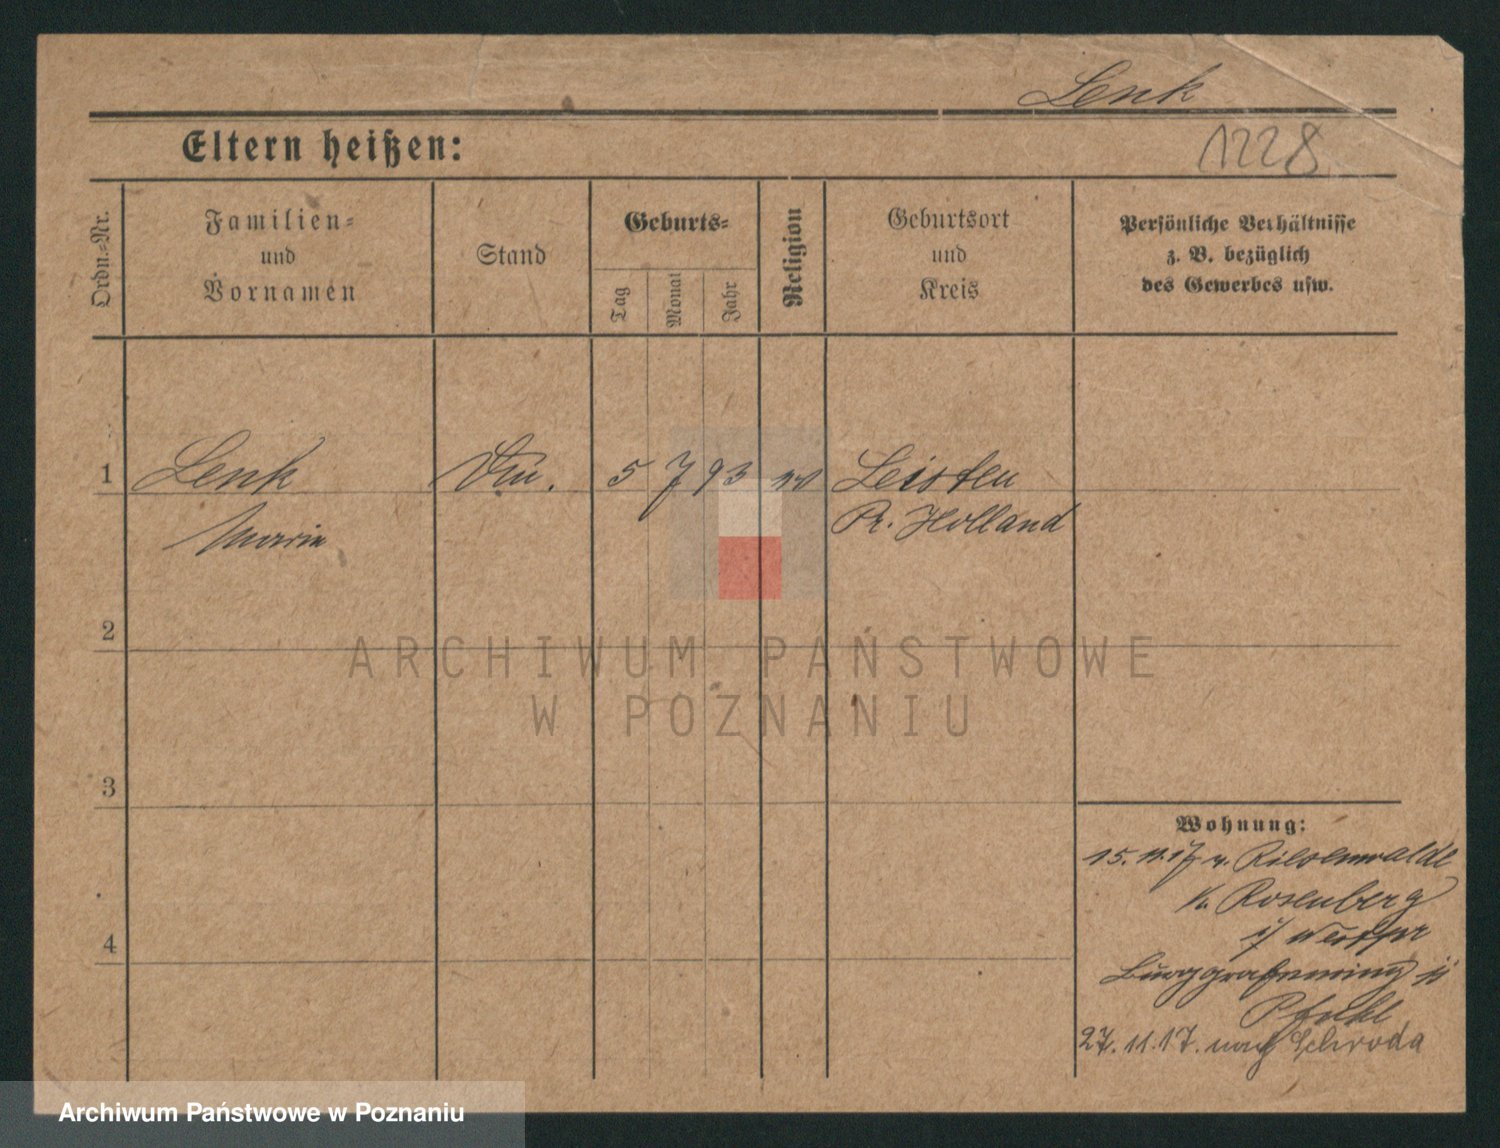 Lenk
Eltern heißen:
1228
Ordn.-Nr.
Familien-
und
Vornamen
Stand
Geburts-
Tag
Monat
Jahr
Religion
Geburtsort
und
Kreis
Persönliche Verhältnisse
z. B. bezüglich
des Gewerbes usw.
1 Lenk 5 7 93 ev Leisten
Marie Pr. Holland
2
ARCHIWUM PAŃSTWOWE
W POZNANIU
3
Wohnung:
15. 11. 17 v.
K. Rosenberg
i/ Westpr
4
27. 11. 17. nach Schroda
Archiwum Państwowe w Poznaniu